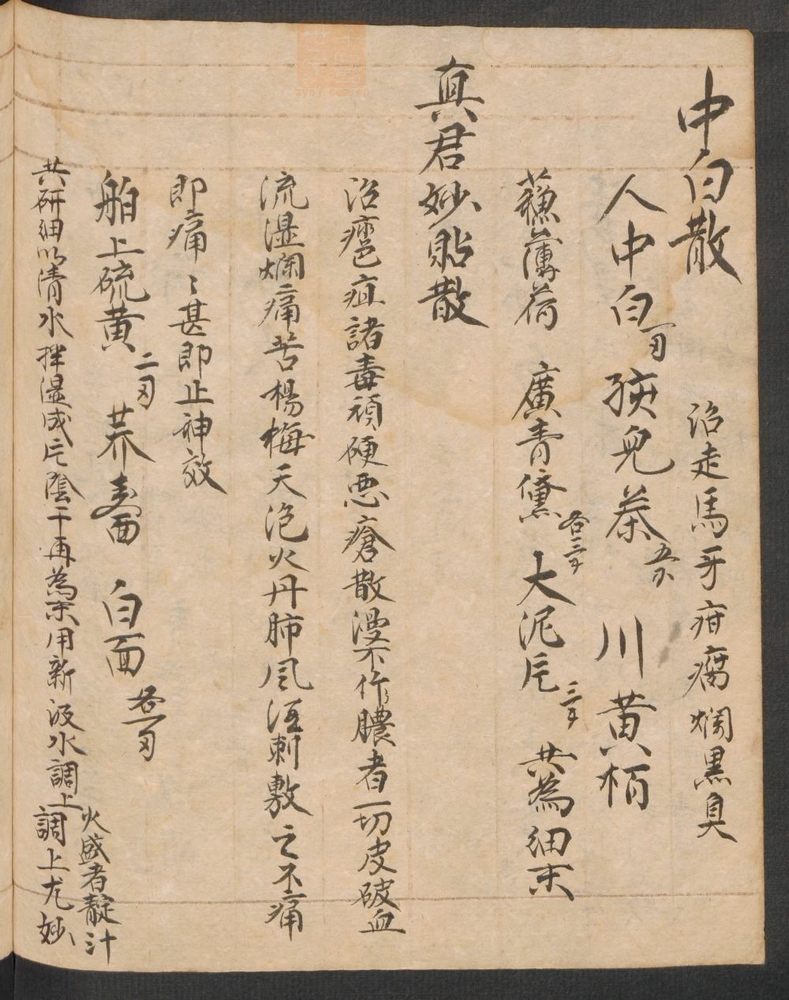 中白散 治走馬牙疳腐爛黑臭
人中白一两 孩児茶五分 川黄栢
蘓薄荷 廣青黛各三个 大泥片三个 共為細末
真君妙貼散
治癰疽諸毒頑硬悪瘡散漫不作膿者一切皮破血
流湿爛痛苦楊梅天泡火丹肺風酒刺敷之不痛
即痛〻甚即止神效
舶上硫黄二两 荞麥面 白面各一两
共研細以清水拌湿成片陰干再為末用新汲水調上
火盛者靛汁
調上尤妙